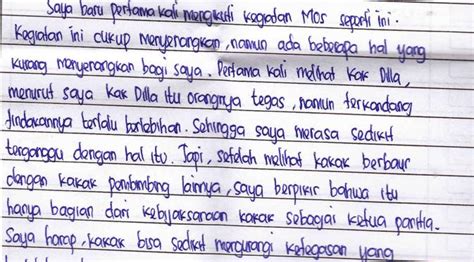 Saya baru pertama kali mengikuti kegiatan MOS seperti ini.
Kegiatan ini cukup menyenangkan, namun ada beberapa hal yang
kurang menyenangkan bagi saya. Pertama kali melihat kak Dilla,
menurut saya kak Dilla itu orangnya tegas, namun terkadang
tindakannya terlalu berlebihan. Sehingga saya merasa sedikit
terganggu dengan hal itu. Tapi, setelah melihat kakak berbaur
dengan kakak pembimbing lainnya, saya berpikir bahwa itu
hanya bagian dari kebijaksanaan kakak sebagai ketua panitia.
Saya harap, kakak bisa sedikit mengurangi ketegasan yang